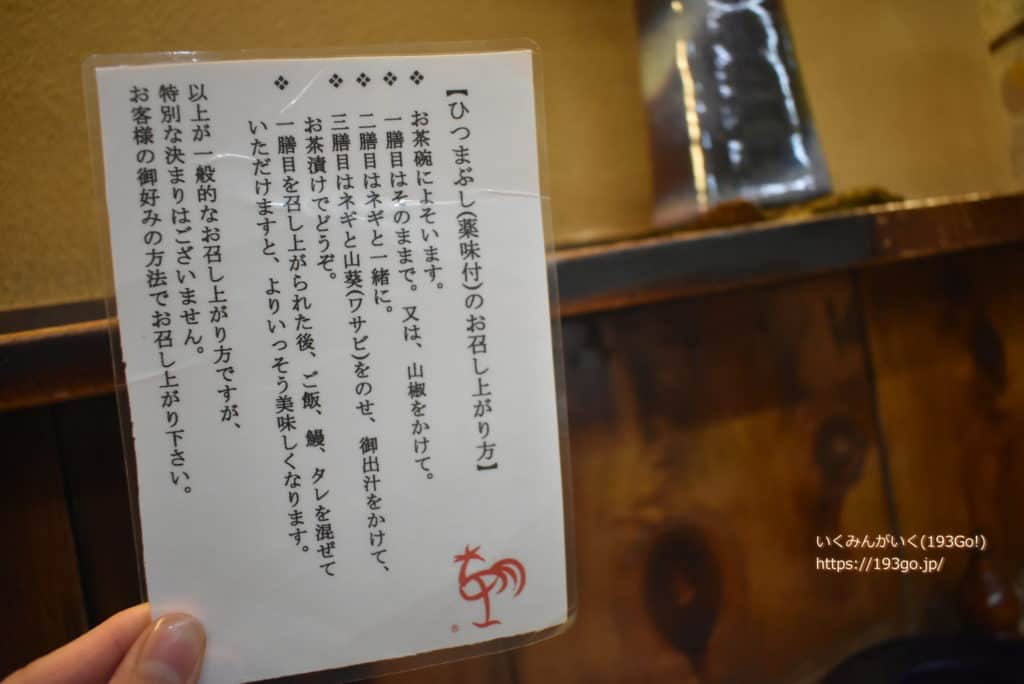 【ひつまぶし(薬味付)のお召し上がり方】
❖ お茶碗によそいます。
❖ 一膳目はそのままで。又は、山椒をかけて。
❖ 二膳目はネギと一緒に。
❖ 三膳目はネギと山葵(ワサビ)をのせ、御出汁をかけて、
お茶漬けでどうぞ。
❖ 一膳目を召し上がられた後、ご飯、鰻、タレを混ぜて
いただけますと、よりいっそう美味しくなります。
以上が一般的なお召し上がり方ですが、
特別な決まりはございません。
お客様の御好みの方法でお召し上がり下さい。
®
いくみんがいく(193Go!)
https://193go.jp/